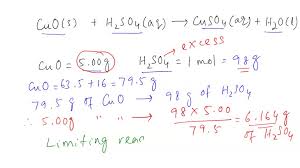 CuO(s) + H₂SO₄(aq) → CuSO₄(aq) + H₂O(l)
excess
CuO = 5.00g H₂SO₄ = 1 mol = 98g
CuO = 63.5 + 16 = 79.5g
79.5g of CuO → 98g of H₂SO₄
∴ 5.00g " " → 98 × 5.00 / 79.5 = 6.164g of H₂SO₄
Limiting reac